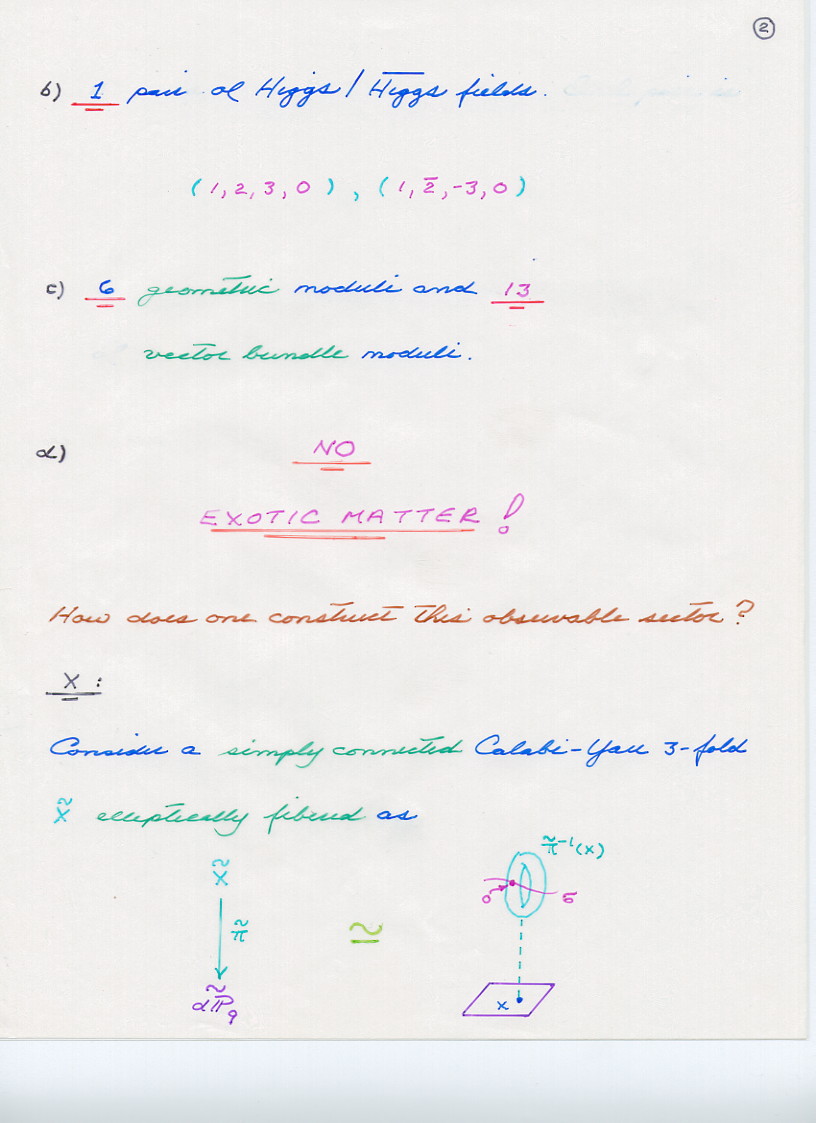 2
b) 1 pair of Higgs / H̅i̅g̅g̅s̅ fields.
( 1, 2, 3, 0 ) , ( 1, 2̄, -3, 0 )
c) 6 geometric moduli and 13
vector bundle moduli.
d) NO
EXOTIC MATTER !
How does one construct this observable sector?
X :
Consider a simply connected Calabi-Yau 3-fold
X̃ elliptically fibered as
π̃⁻¹(x)
X̃
0 σ
π̃ ≃
dP̃₉ x